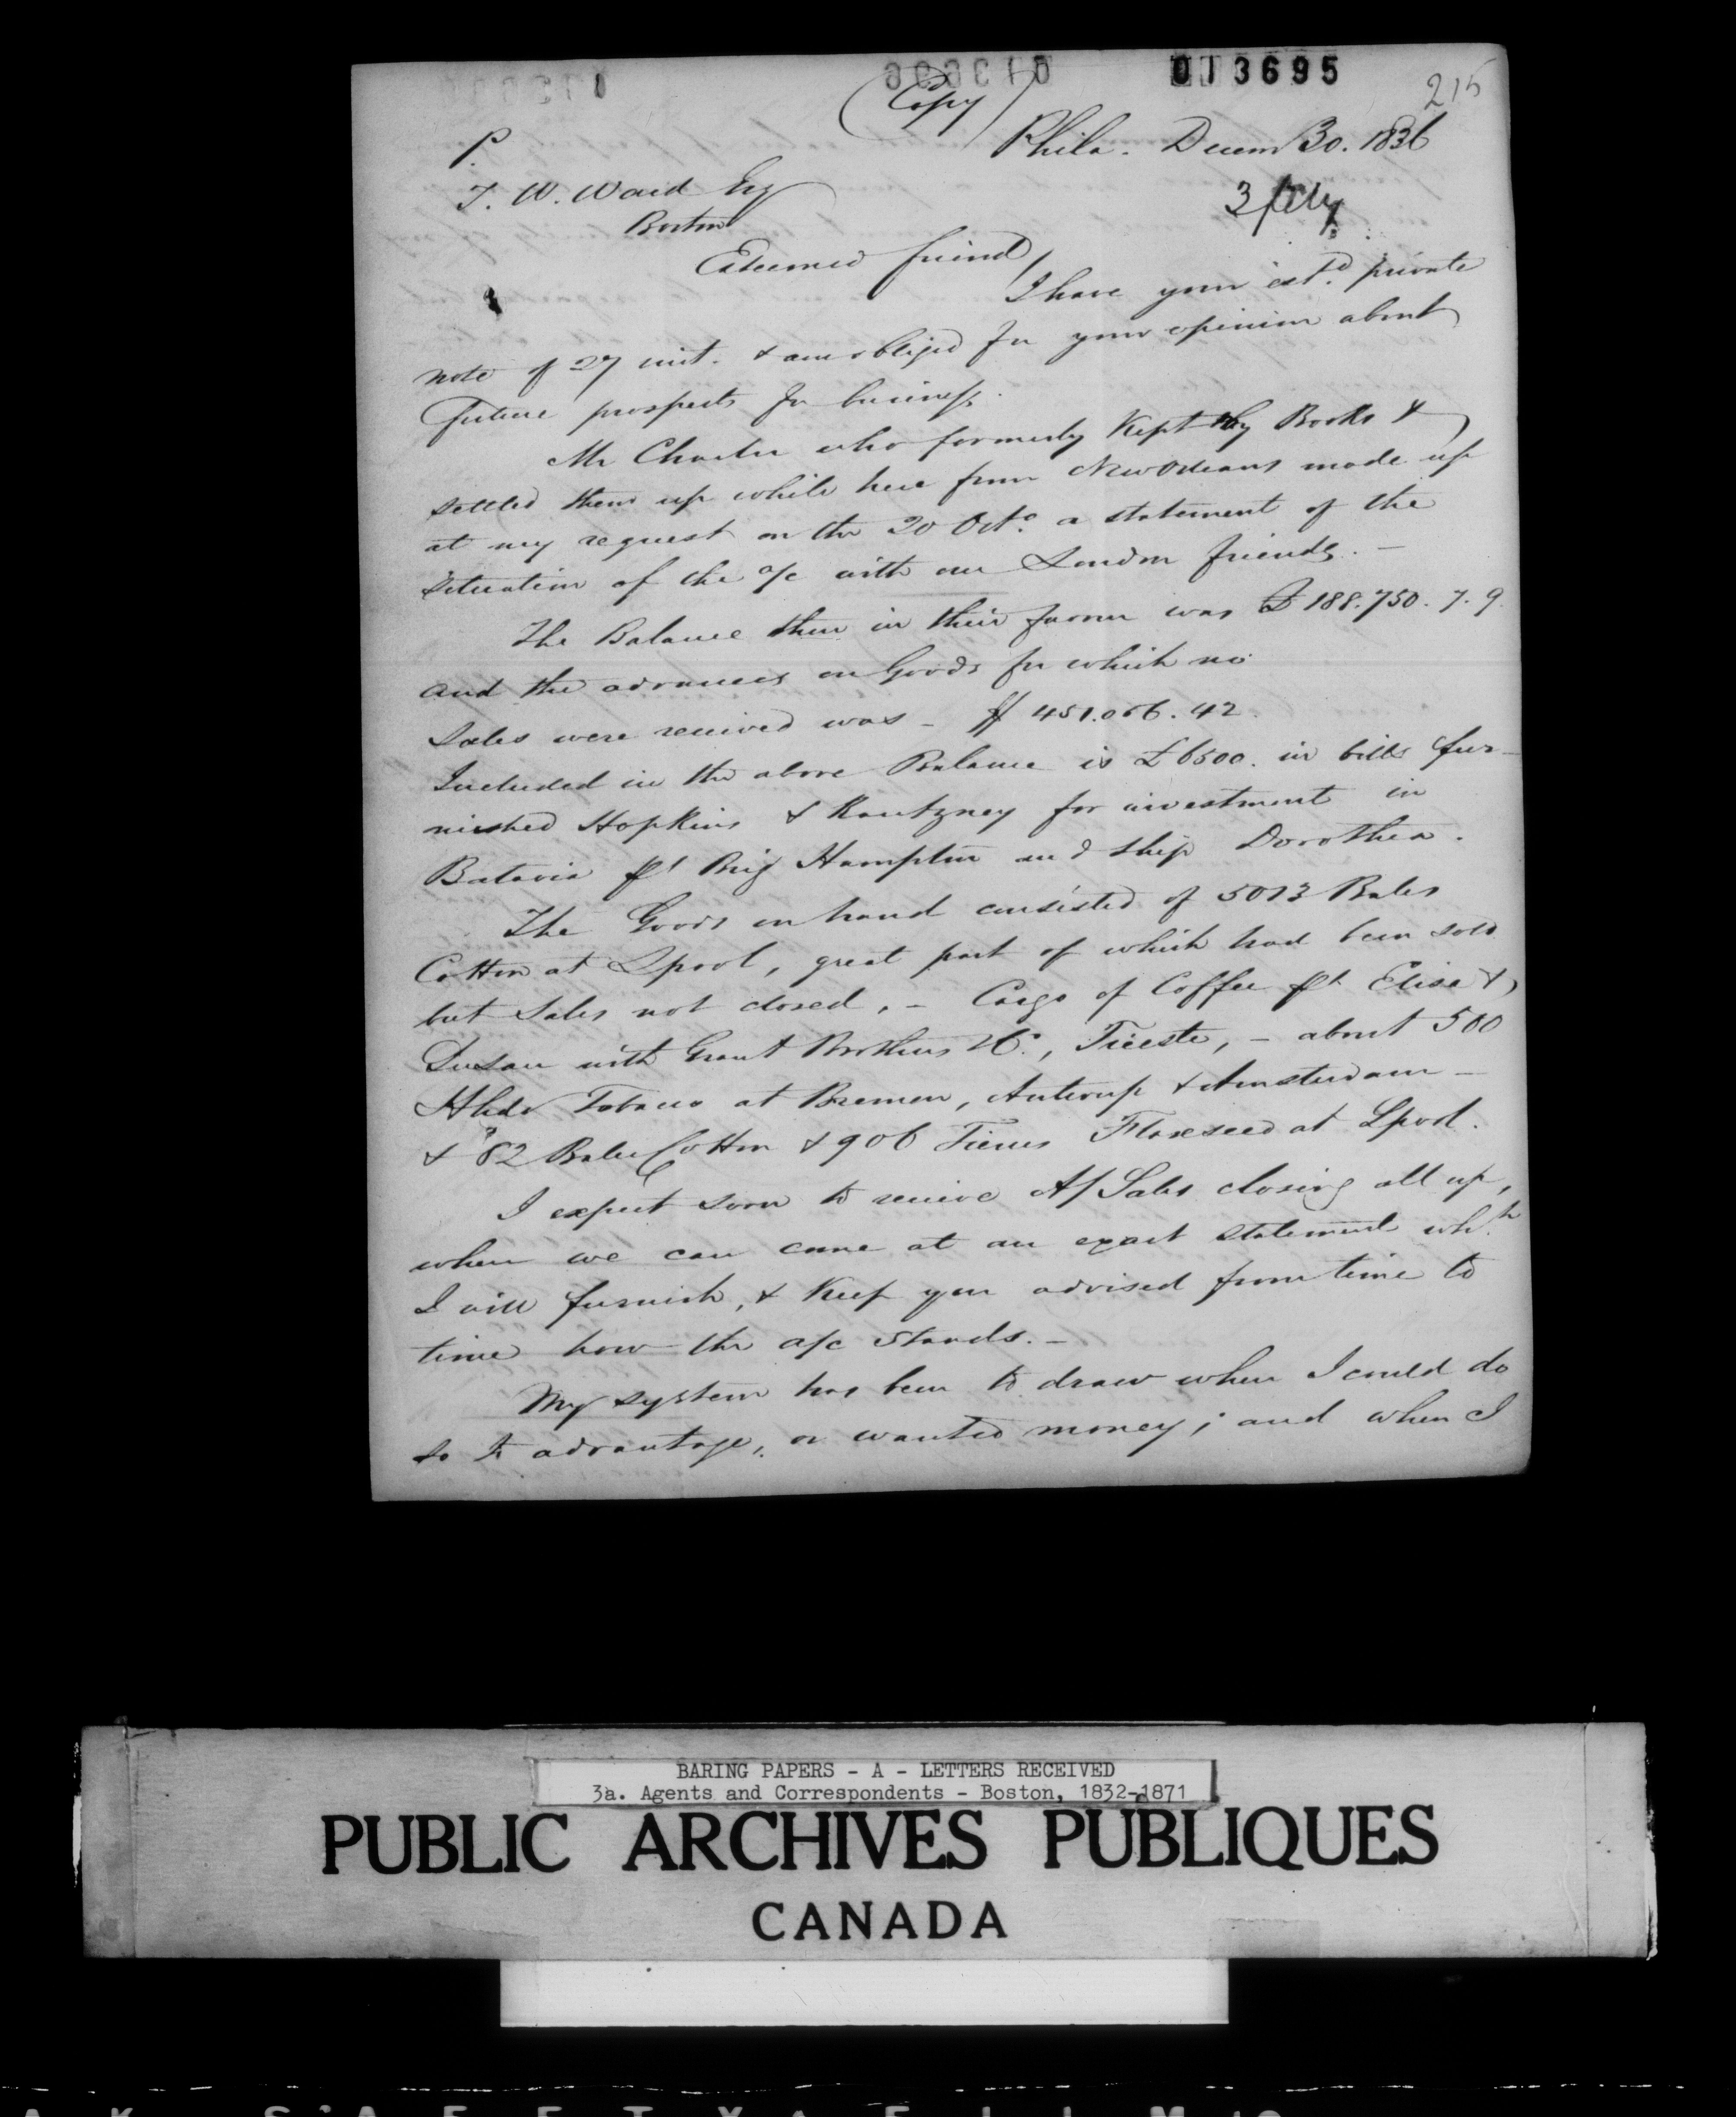 013695
215
(Copy)
Phila. Decem 30. 1836
P.
T. W. Ward Esq
Boston
Esteemed friend,
I have your est.d private
note of 27 inst. & am obliged for your opinion about
future prospects for business.
Mr Charter who formerly Kept my Books &
settled them up while here from New Orleans made up
at my request on the 20 Oct.o a statement of the
situation of the a/c with our London friends. -
The Balance then in their favour was £ 188.750. 7. 9.
and the advances on Goods for which no
Sales were received was - $ 451.056. 42.
Included in the above Balance is £ 6500. in bills fur-
nished Hopkins & for investment in
Batavia pr Brig Hampton and ship Dorothea.
The Goods on hand consisted of 5013 Bales
Cotton at Lpool, great part of which had been sold
but Sales not closed, - Cargo of Coffee pr Eliza &
Susan with Grant Brothers & Co., Trieste, - about 500
Hhds Tobacco at Bremen, Antwerp & Amsterdam -
& 82 Bales Cotton & 906 Tierces Flaxseed at Lpool.
I expect soon to receive A/ Sales closing all up,
when we can come at an exact statement wh.h
I will furnish, & Keep you advised from time to
time how the a/c stands. -
My system has been to draw when I could do
so to advantage, or wanted money; and when I
BARING PAPERS - A - LETTERS RECEIVED
3a. Agents and Correspondents - Boston, 1832-1871
PUBLIC ARCHIVES PUBLIQUES
CANADA